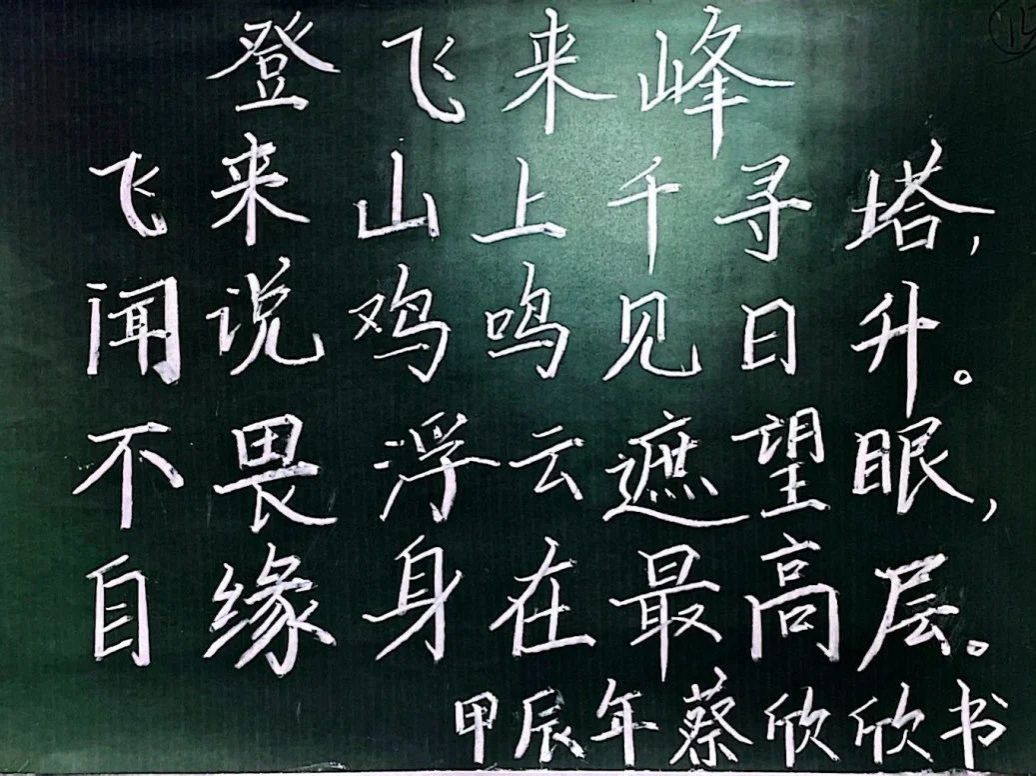 登飞来峰
飞来山上千寻塔，
闻说鸡鸣见日升。
不畏浮云遮望眼，
自缘身在最高层。
甲辰年蔡欣欣书